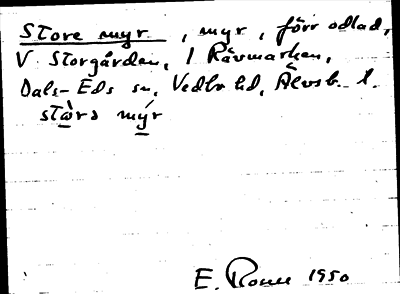 Store myr, myr, förr odlad,
V Storgården, 1 Rävmarken,
Dals-Eds sn, Vedbo hd, Älvsb. l.
stàrs mýr
E. 1950